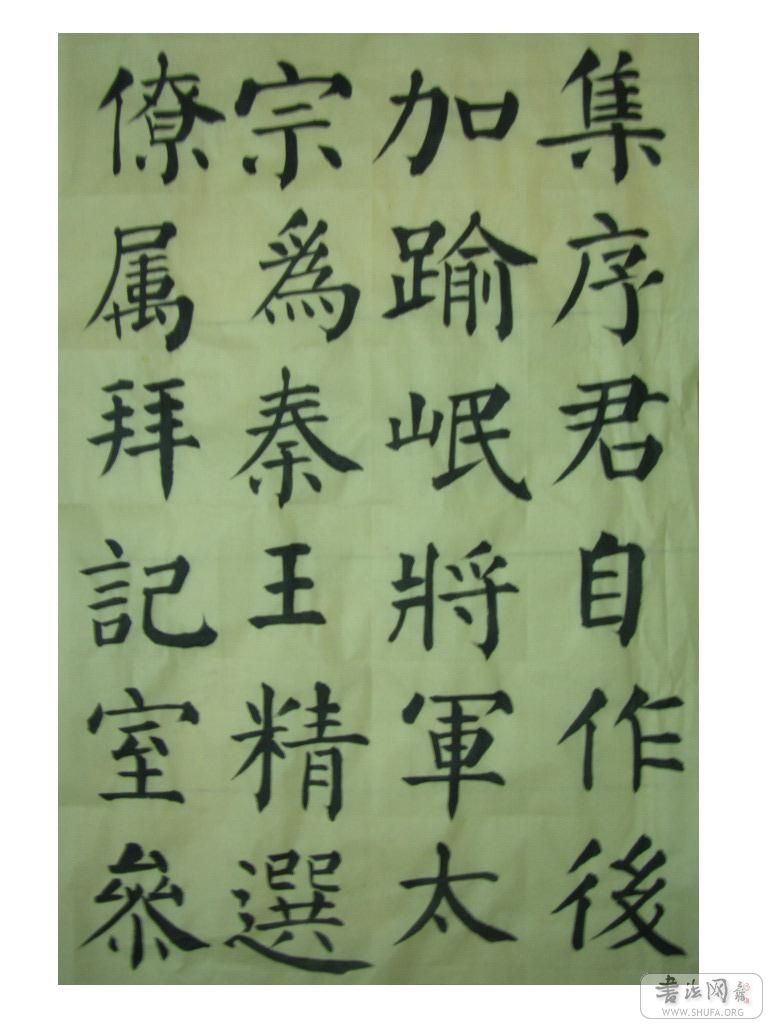 集序君自作後
加踰岷將軍太
宗爲秦王精選
僚属拜記室參
書法网
WWW.SHUFA.ORG